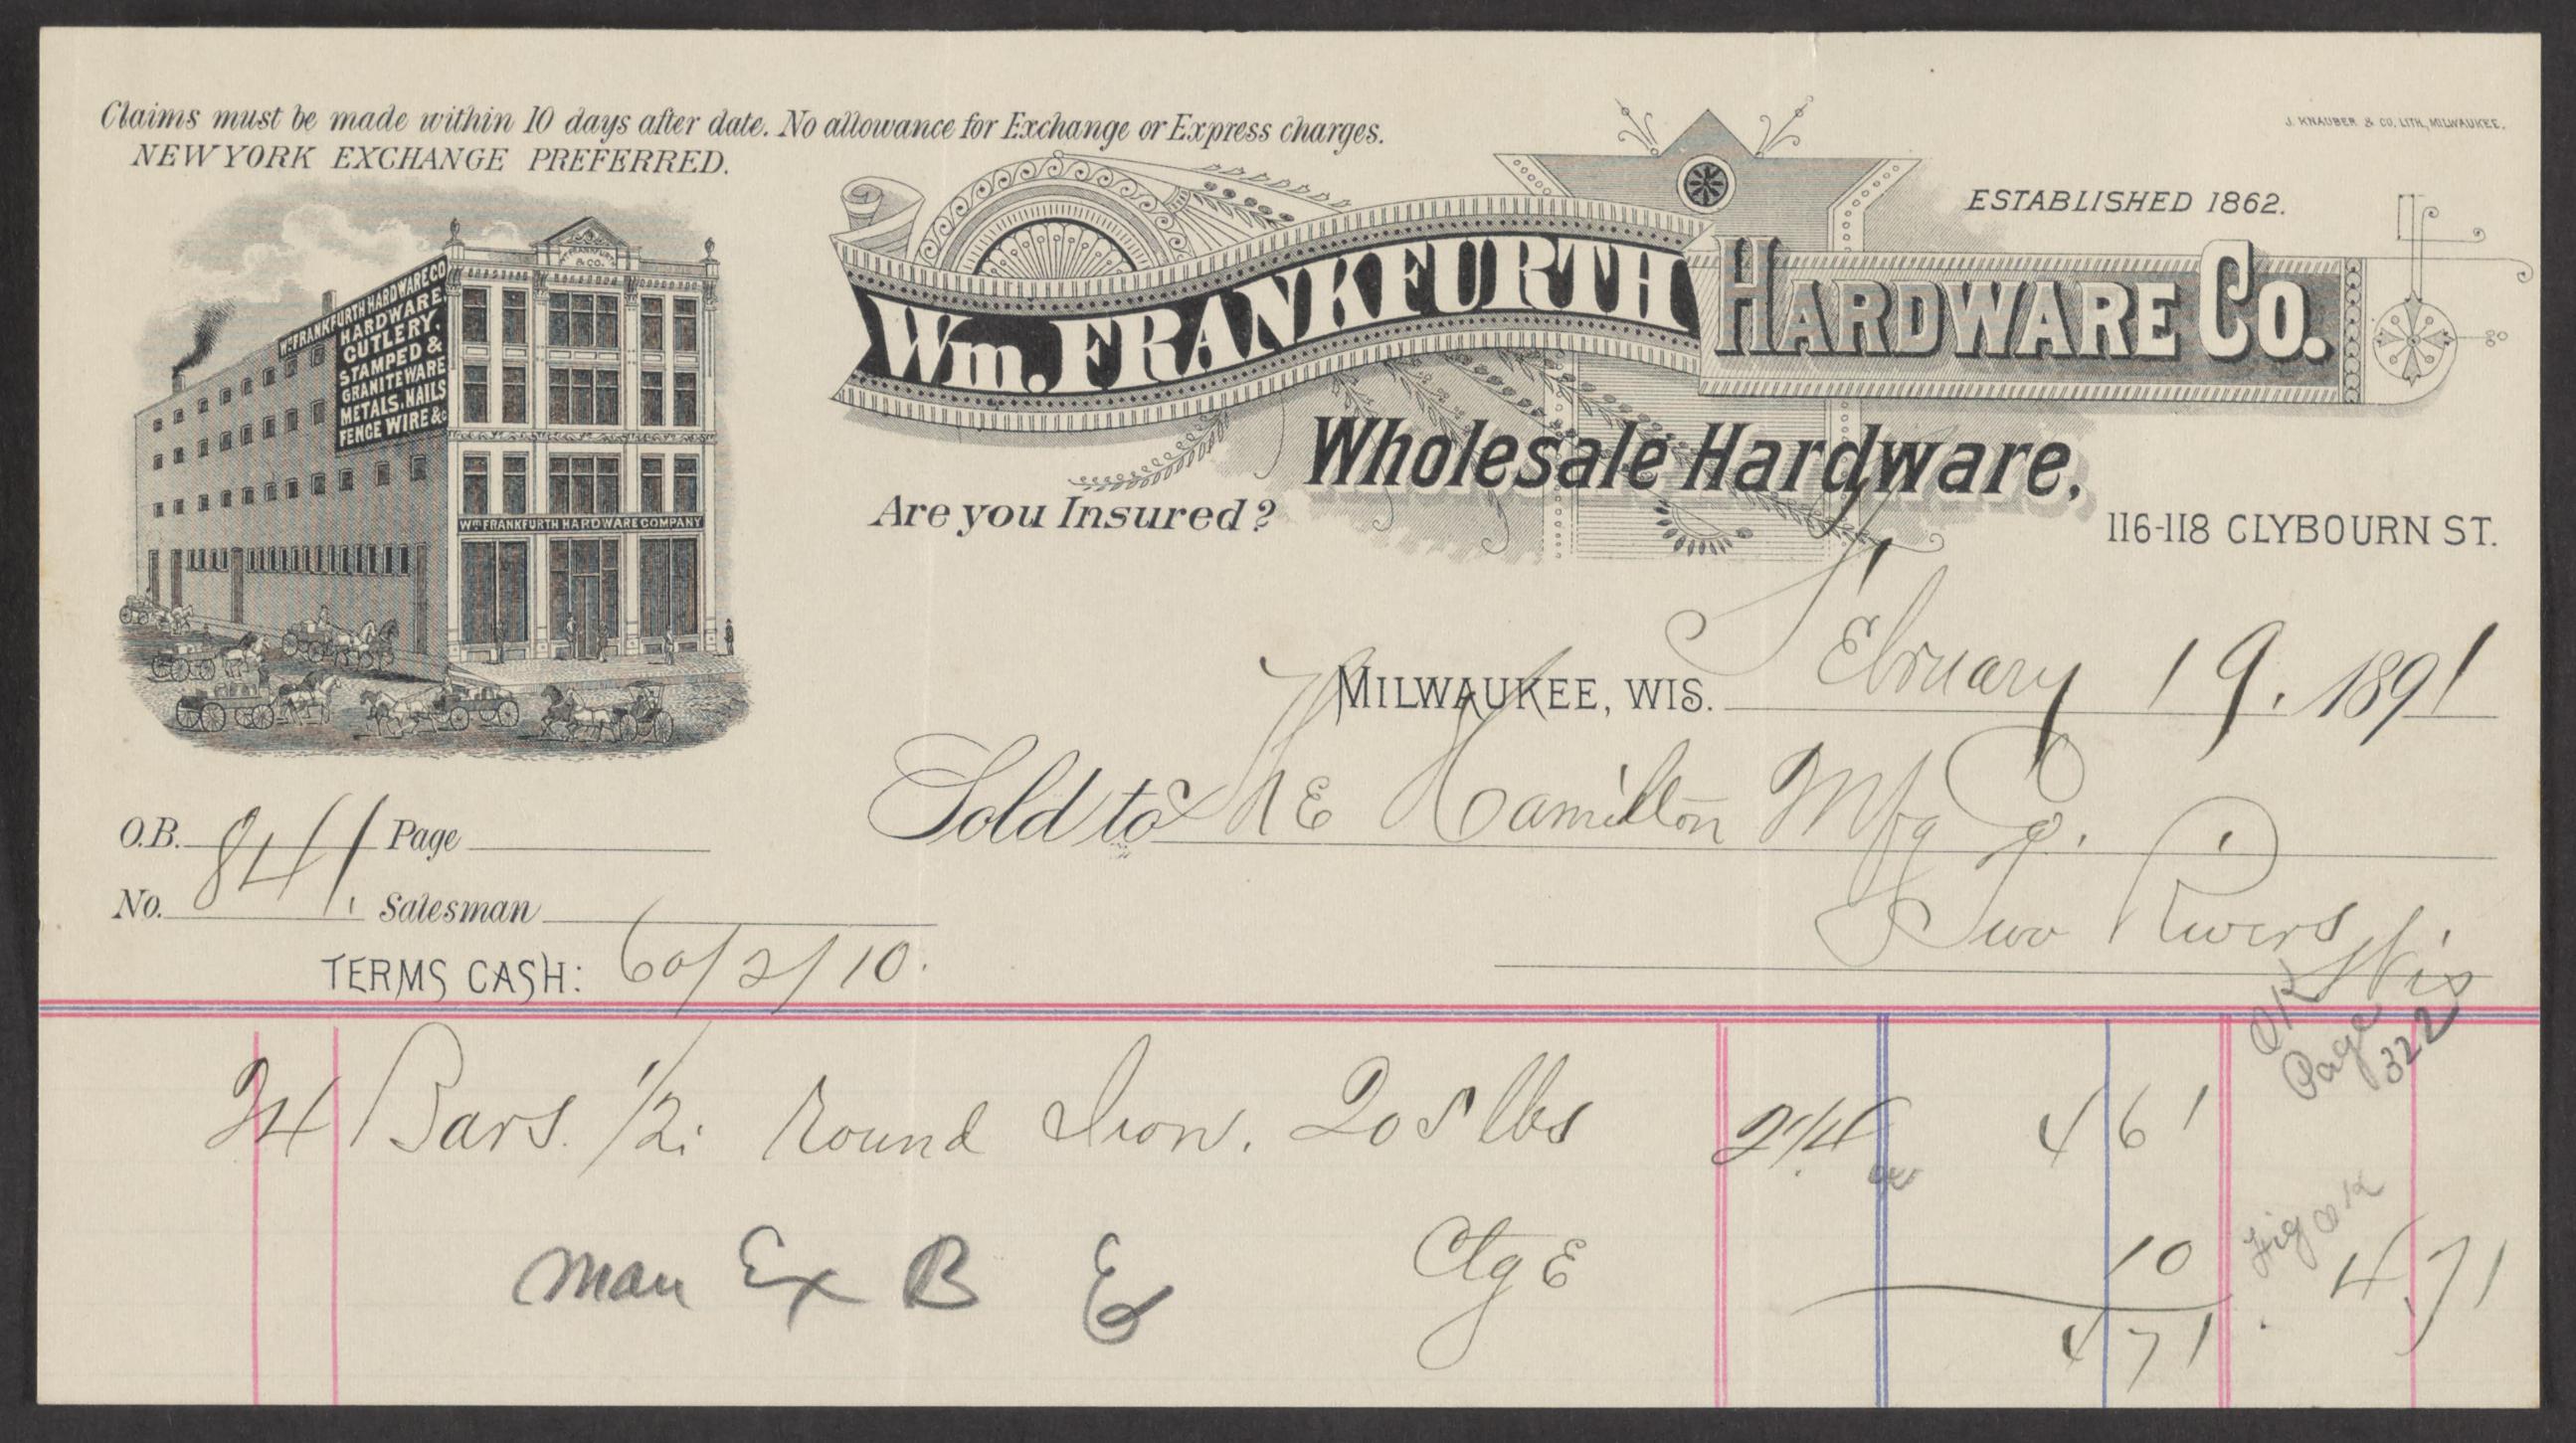 Claims must be made within 10 days after date. No allowance for Exchange or Express charges.
NEW YORK EXCHANGE PREFERRED.
J. KNAUBER & CO. LITH. MILWAUKEE.
ESTABLISHED 1862.
Wm. FRANKFURTH HARDWARE CO.
Wholesale Hardware,
Are you Insured?
116-118 CLYBOURN ST.
& CO.
Wm FRANKFURTH HARDWARE CO
HARDWARE,
CUTLERY,
STAMPED &
GRANITEWARE
METALS, NAILS
FENCE WIRE &c
Wm FRANKFURTH HARDWARE COMPANY
MILWAUKEE, WIS. February 19. 1891
Sold to The Hamilton Mfg Co.
Two Rivers
Wis
O.B. 841. Page
No. Salesman
TERMS CASH: 60/2/10.
OK
Page
322
24 Bars. 1/2. Round Iron. 205 lbs 2 1/4 461
Fig OK
Man Ex B Ctg E 10 471
471